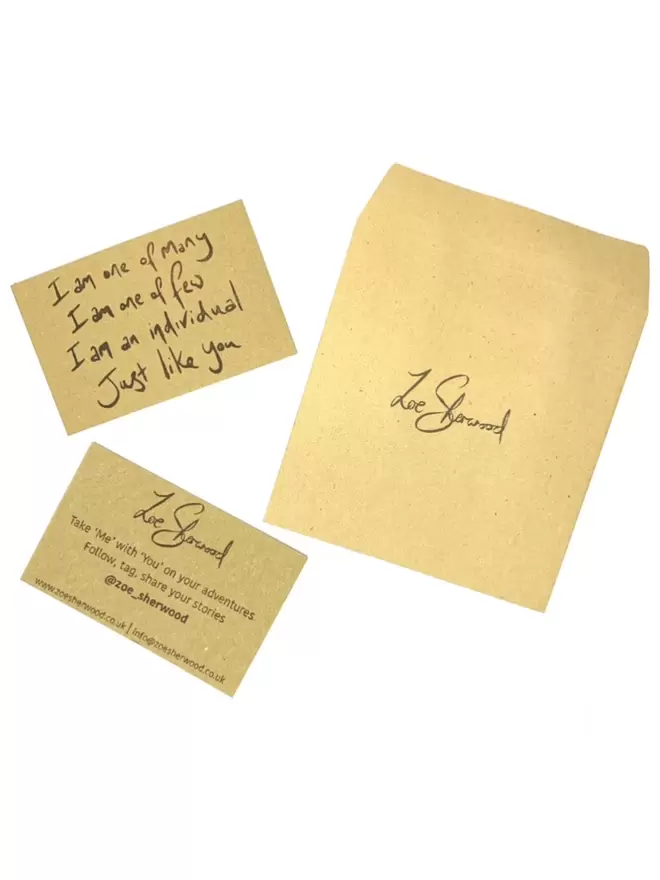 I am one of many
I am one of few
I am an individual
Just like you
Zoe Sherwood
Zoe Sherwood
Take 'Me' with 'You' on your adventures
Follow, tag, share your stories
@zoe_sherwood
www.zoesherwood.co.uk | info@zoesherwood.co.uk